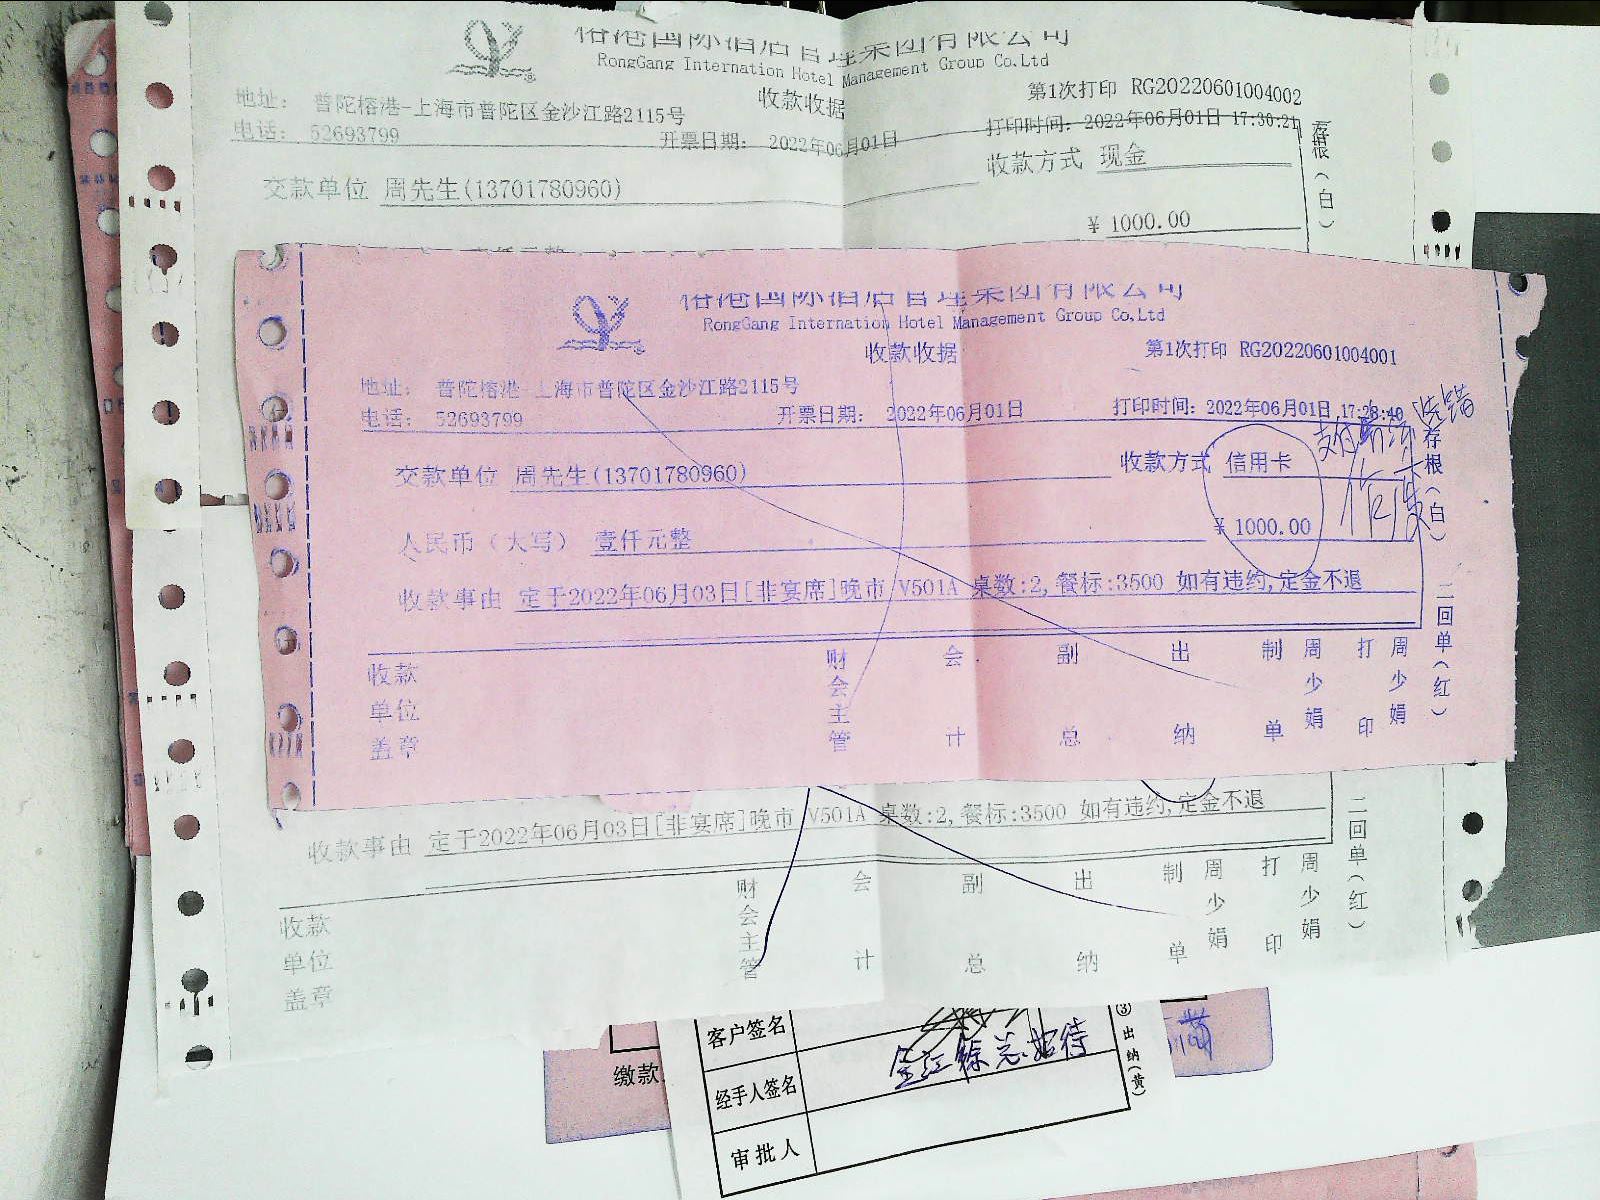 榕港国际酒店管理集团有限公司
RongGang International Hotel Management Group Co.Ltd
收款收据
第1次打印 RG20220601004002
地址： 普陀榕港-上海市普陀区金沙江路2115号
电话： 52693799
开票日期： 2022年06月01日
打印时间：2022年06月01日 17:30:21
交款单位 周先生(13701780960)
收款方式 现金
¥ 1000.00
存根（白）
榕港国际酒店管理集团有限公司
RongGang International Hotel Management Group Co,Ltd
收款收据
第1次打印 RG20220601004001
地址： 普陀榕港-上海市普陀区金沙江路2115号
电话： 52693799
开票日期： 2022年06月01日
打印时间：2022年06月01日 17:28:40
交款单位 周先生(13701780960)
收款方式 信用卡
支付
选错
人民币（大写） 壹仟元整
¥ 1000.00
收款事由 定于2022年06月03日[非宴席]晚市 V501A 桌数:2,餐标:3500 如有违约,定金不退
存根（白）
二回单（红）
收款单位盖章
财会主管
会计
副总
出纳
制单
周少娟
打印
周少娟
收款事由 定于2022年06月03日[非宴席]晚市 V501A 桌数:2,餐标:3500 如有违约,定金不退
二回单（红）
收款单位盖章
财会主管
会计
副总
出纳
制单
周少娟
打印
周少娟
客户签名
经手人签名
审批人
③出纳（黄）
缴款
招待